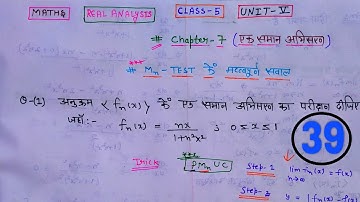 MATHS REAL ANALYSIS CLASS-5 UNIT-V
# Chapter-7 (एक समान अभिसरण)
# Mn-TEST के महत्वपूर्ण सवाल
Q-(1) अनुक्रम <fn(x)> के एक समान अभिसरण का परीक्षण कीजिए
जहाँ:- fn(x) = nx/1+n²x² ; 0≤x≤1
39
Trick PMnUC
Step-1 lim fn(x) = f(x)
n→∞
Step-2 y = |fn(x)-f(x)